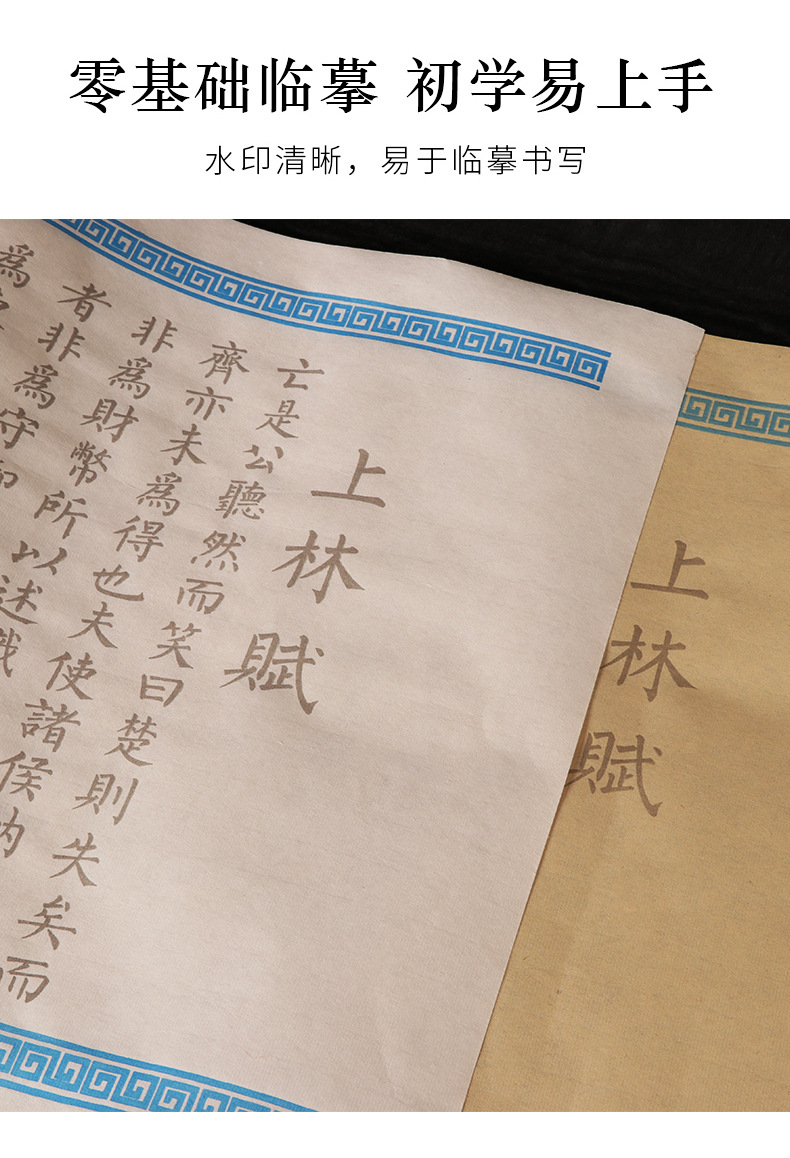 零基础临摹 初学易上手
水印清晰，易于临摹书写
上林賦
亡是公聽然而笑曰楚則失矣而
齊亦未爲得也夫使諸侯
非爲財幣所以述
者非爲守
爲
上林賦